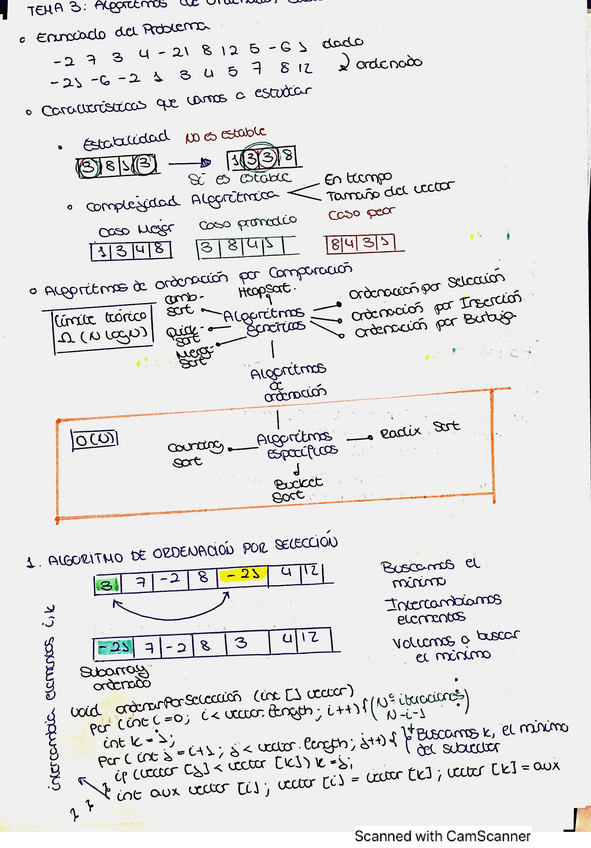 TEMA 3: Algoritmos de Ordenación,
o Enunciado del Problema
-2 7 3 4 -21 8 12 5 -6 1 dado
-21 -6 -2 1 3 4 5 7 8 12 ordenado
o Características que vamos a estudiar
• Estabilidad No es estable
3 8 1 3 → 1 3 3 8
Si es estable
• Complejidad Algorítmica
En tiempo
Tamaño del vector
Caso Mejor Caso promedio Caso peor
1 3 4 8
3 8 4 1
8 4 3 1
o Algoritmos de ordenación por Comparación
Límite teórico
Ω (N log N)
Comb-sort
HeapSort.
Quick-sort
Merge-sort
Algoritmos genéricos
Ordenación por Selección
Ordenación por Inserción
Ordenación por Burbuja
Algoritmos
de
ordenación
O(N)
Counting
sort
Algoritmos
específicos
Radix Sort
Bucket
Sort.
1. ALGORITMO DE ORDENACIÓN POR SELECCIÓN
3 7 -2 8 -21 4 12
Buscamos el
mínimo
Intercambiamos
elementos
-21 7 -2 8 3 4 12
Volvemos a buscar
el mínimo
Subarray
ordenado
intercambia elementos i,k
void ordenarPorSelección (int [] vector)
for (int i=0; i < vector.length; i++) { (Nº iteraciones
N-i-1)
int k = i;
for (int j = i+1; j < vector.length; j++) { Buscamos k, el mínimo
del subvector
if (vector [j] < vector [k]) k = j;
}
int aux vector [i]; vector [i] = vector [k]; vector [k] = aux
} }
Scanned with CamScanner